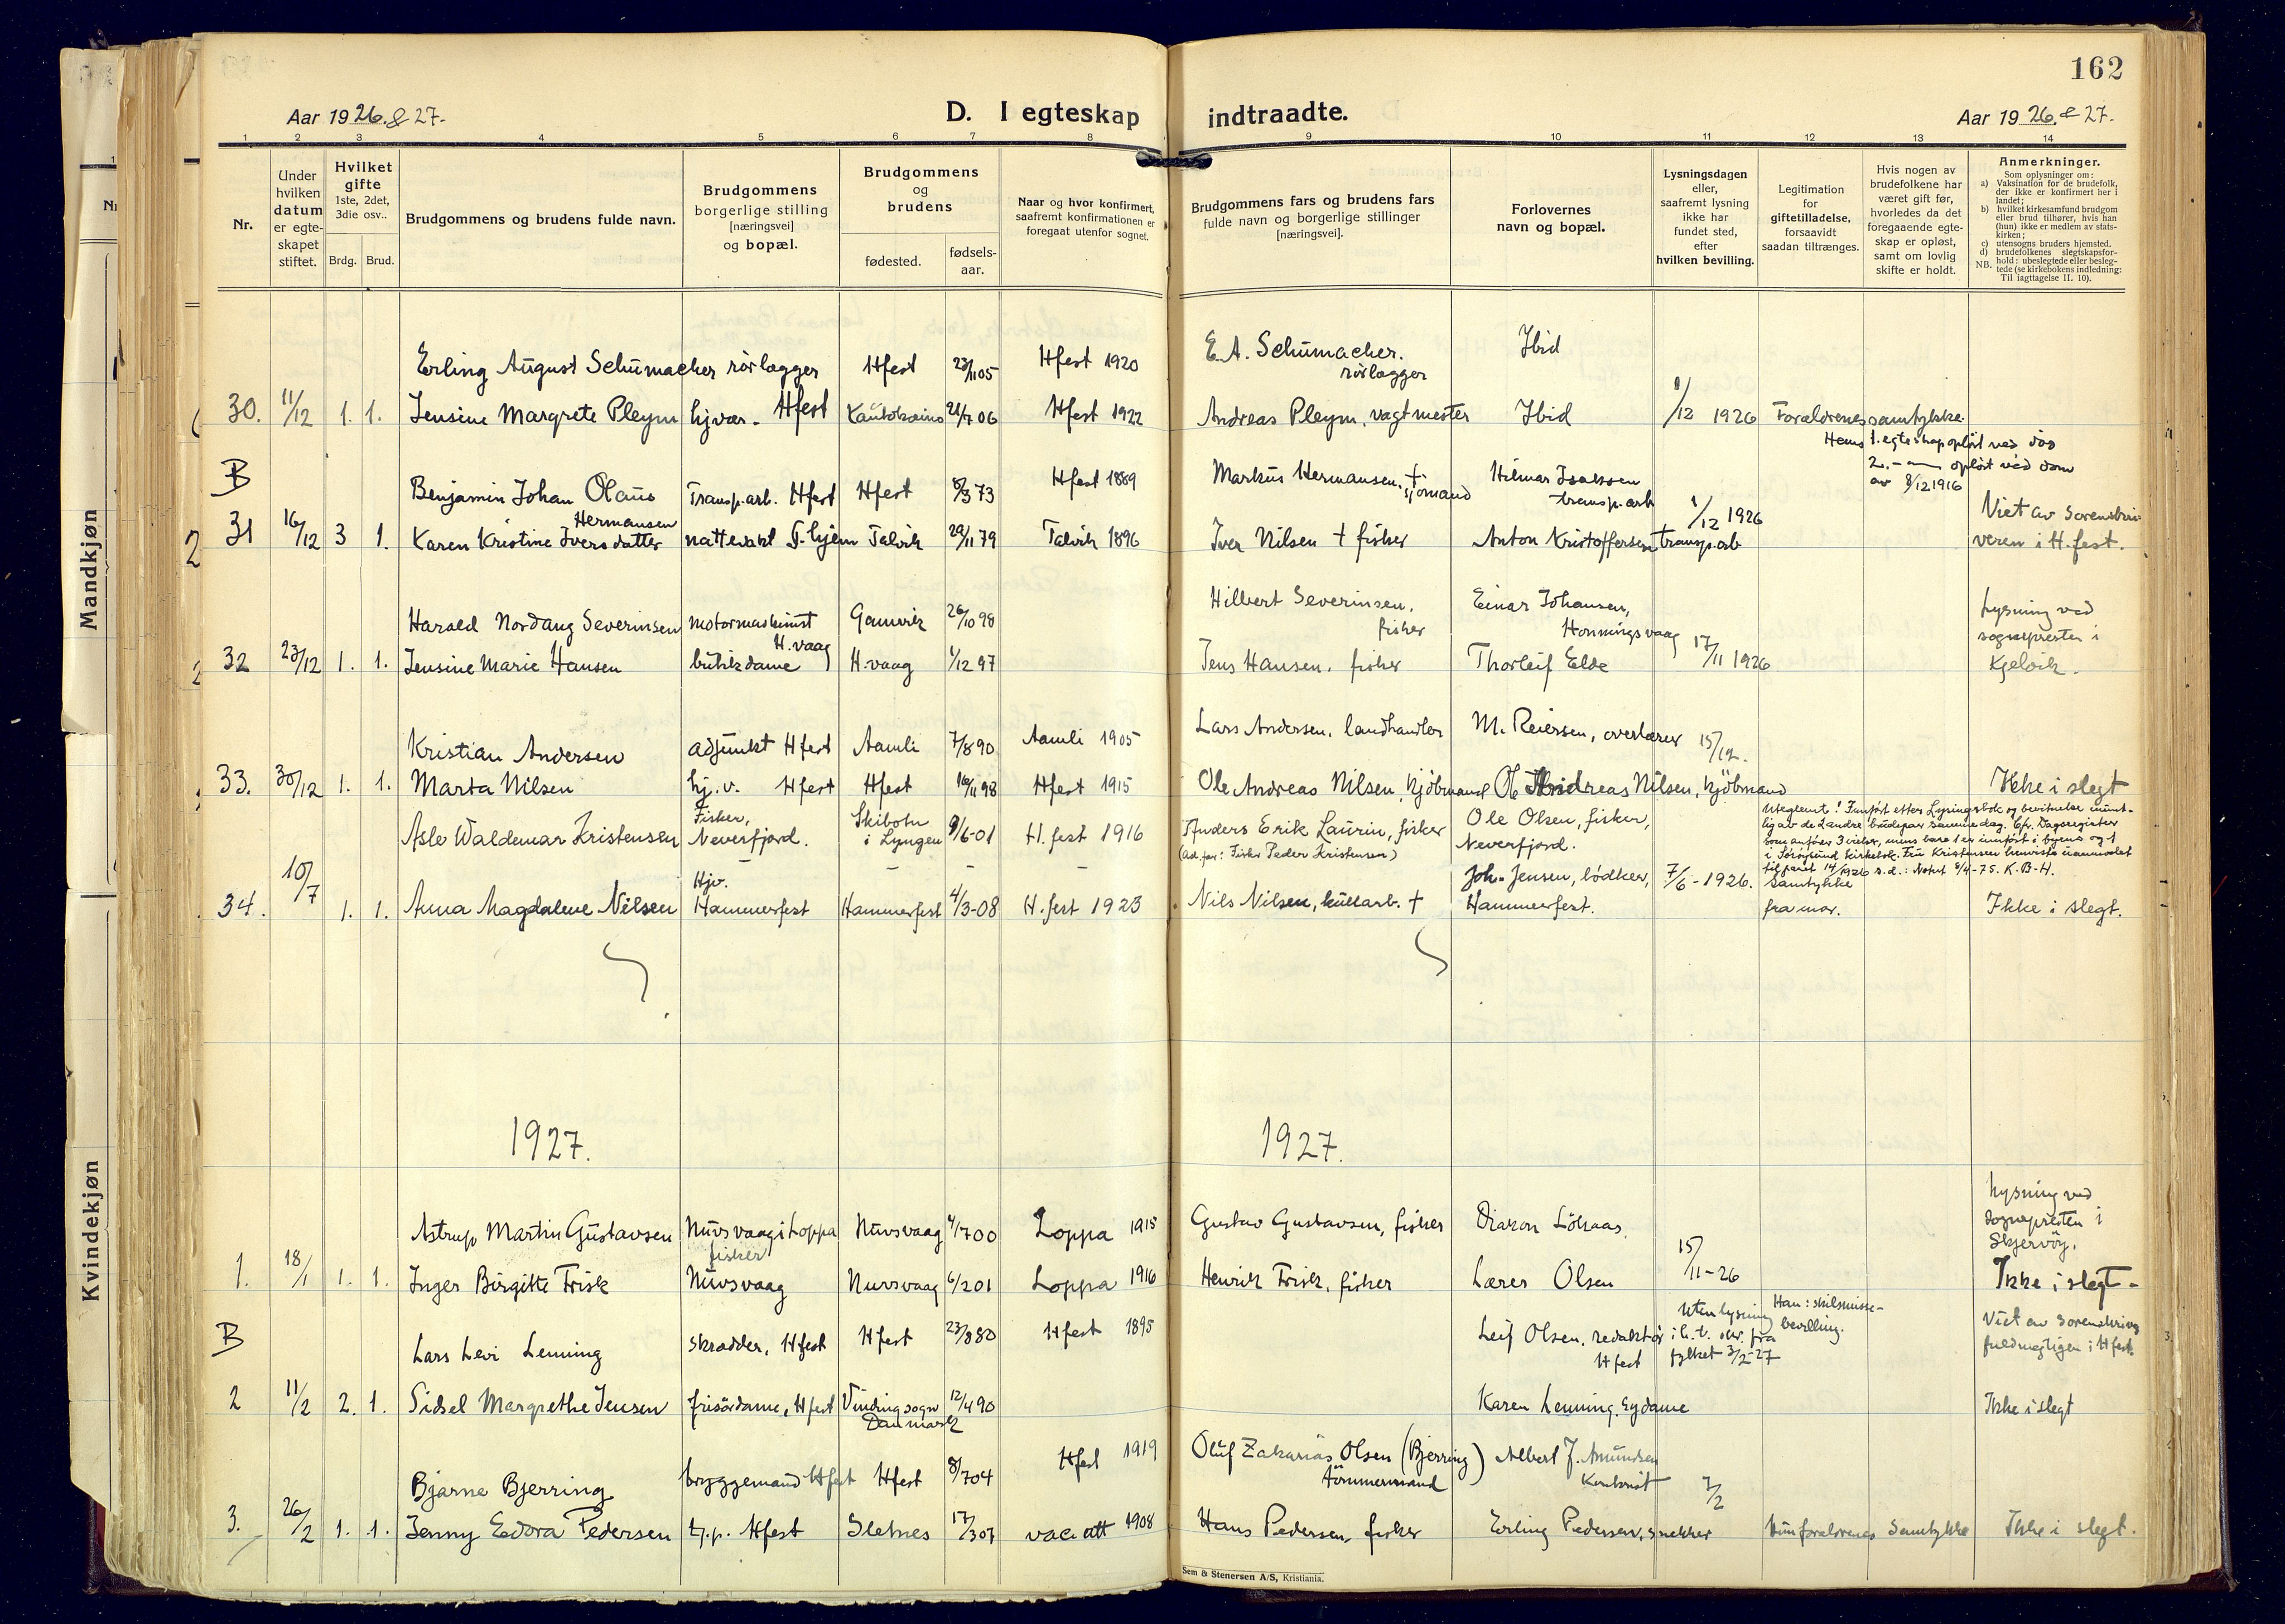 162
Aar 1926. & 27.
D. I egteskap indtraadte.
Aar 1926. & 27.
1 2 3 4 5 6 7 8 9 10 11 12 13 14
Nr.
Under hvilken datum er egte-skapet stiftet.
Hvilket gifte
1ste, 2det, 3die osv..
Brdg. Brud.
Brudgommens og brudens fulde navn.
Brudgommens borgerlige stilling [næringsvei] og bopæl.
Brudgommens og brudens
fødested.
fødsels-aar.
Naar og hvor konfirmert, saafremt konfirmationen er foregaat utenfor sognet.
Brudgommens fars og brudens fars fulde navn og borgerlige stillinger [næringsvei].
Forlovernes navn og bopæl.
Lysningsdagen eller, saafremt lysning ikke har fundet sted, efter hvilken bevilling.
Legitimation for giftetilladelse, forsaavidt saadan tiltrænges.
Hvis nogen av brudefolkene har været gift før, hvorledes da det foregaaende egte-skap er opløst, samt om lovlig skifte er holdt.
Anmerkninger.
Som oplysninger om:
a) Vaksination for de brudefolk, der ikke er konfirmert her i landet;
b) hvilket kirkesamfund brudgom eller brud tilhører, hvis han (hun) ikke er medlem av stats-kirken;
c) utensogns bruders hjemsted.
d) brudefolkenes slegtskapsfor-hold: ubeslegtede eller besleg-tede (se kirkebokens indledning: Til iagttagelse II. 10).
NB.
Erling August Schumacher rørlægger Hfest 23/11 05 Hfest 1920 E. A. Schumacher. rørlægger Ibid
30. 11/12 1. 1. Jensine Margrete Pleym hjvær. Hfest Kautokeino 21/7 06 Hfest 1922 Andreas Pleym, vagtmester Ibid 1/12 1926 Forældrenes samtykke.
Hans 1. egteskap opløst ved død
2. - opløst ved dom
av 8/12 1916
B
Benjamin Johan Olaus Hermansen Transp.arb. Hfest Hfest 8/3 73 Hfest 1889 Markus Hermansen, + sjømand Hilmar Isaksen transp.arb
31 16/12 3 1. Karen Kristine Iversdatter nattevakt Talvik 29/11 79 Talvik 1896 Iver Nilsen + fisker Anton Kristoffersen transp.arb 1/12 1926 Viet av Sorenskri-veren i H.fest.
Harald Nordang Severinsen motormaskinist H.vaag Gamvik 26/10 98 Hilbert Severinsen, fisker Einar Johansen, Honningsvaag
32 23/12 1. 1. Jensine Marie Hansen butikdame H.vaag 1/12 97 Jens Hansen, fisker Thorleif Elde 17/11 1926 Lysning ved sognepresten i Kjelvik.
Kristian Andersen adjunkt Hfest Aamli 7/8 90 Aamli 1905 Lars Andersen, landhandler M. Reiersen, overlærer
33. 30/12 1. 1. Marta Nilsen hj.v. Hfest Hfest 16/11 98 Hfest 1915 Ole Andreas Nilsen, kjøbmand Ole Andreas Nilsen, kjøbmand 15/12. Ikke i slegt
Uteglemt! Innført etter Lysningsbok og bevitnelse munt-
lig av de 2 andre brudepar samme dag. Cfr. Dagsregister
som anfører 3 vielser, mens bare 1 er innført i byens og 1
i Sørøysund kirkebok. Fru Kristensen henviste
til paret 14/1926 s.d.: Notert 9/4-75. K.B-H.
Asle Waldemar Kristensen Fisker, Neverfjord. Skibotn i Lyngen 9/6-01 H.fest 1916 Anders Erik Laurin, fisker (Ad.far: Fisker Peder Kristensen) Ole Olsen, fisker, Neverfjord.
34. 10/7 1. 1. Anna Magdalene Nilsen Hjv. Hammerfest Hammerfest 4/3-08 H.fest 1923 Nils Nilsen, kullarb. + Joh. Jensen, bødker, Hammerfest. 7/6-1926. Samtykke fra mor. Ikke i slegt.
1927. 1927.
Astrup Martin Gustavsen Nuvsvaag i Loppa fisker Nuvsvaag 4/7 00 Loppa 1915 Gustav Gustavsen, fisker Diakon Löhaas.
1. 18/1 1. 1. Inger Birgitte Frisk Nuvsvaag Nuvsvaag 6/2 01 Loppa 1916 Henrik Frisk, fisker Lærer Olsen 15/11-26 Lysning ved sognepresten i Skjervöy. Ikke i slegt.
B
Lars Levi Lenning skrædder, Hfest Hfest 23/8 80 Hfest 1895 Leif Olsen, redaktør Hfest Uten lysning i h.t. skr. fra fylket 3/2-27 Han: skilsmisse-bevilling. Viet av sorenskriver fuldmægtigen i Hfest.
2 11/2 2. 1. Sidsel Margrethe Jensen frisördame, Hfest Vinding sogn Danmark 12/4 90 Karen Lenning. Ikke i slegt
Bjarne Bjerring bryggemand Hfest Hfest 8/7 04 Hfest 1919 Oluf Zakarias Olsen (Bjerring) tömmermand Albert J. Amundsen Kontorist
3. 26/2 1. 1. Jenny Edora Pedersen tj.p. Hfest Sletnes 17/3 07 vac att 1908 Hans Pedersen, fisker Erling Pedersen, snekker 7/2 Hun forældrenes Samtykke Ikke i slegt.
Sem & Stenersen A/S, Kristiania.
Mandkjøn
Kvindekjøn